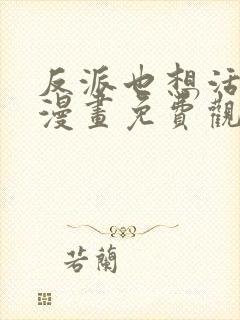 反派也想活
漫畫免費觀
若蘭